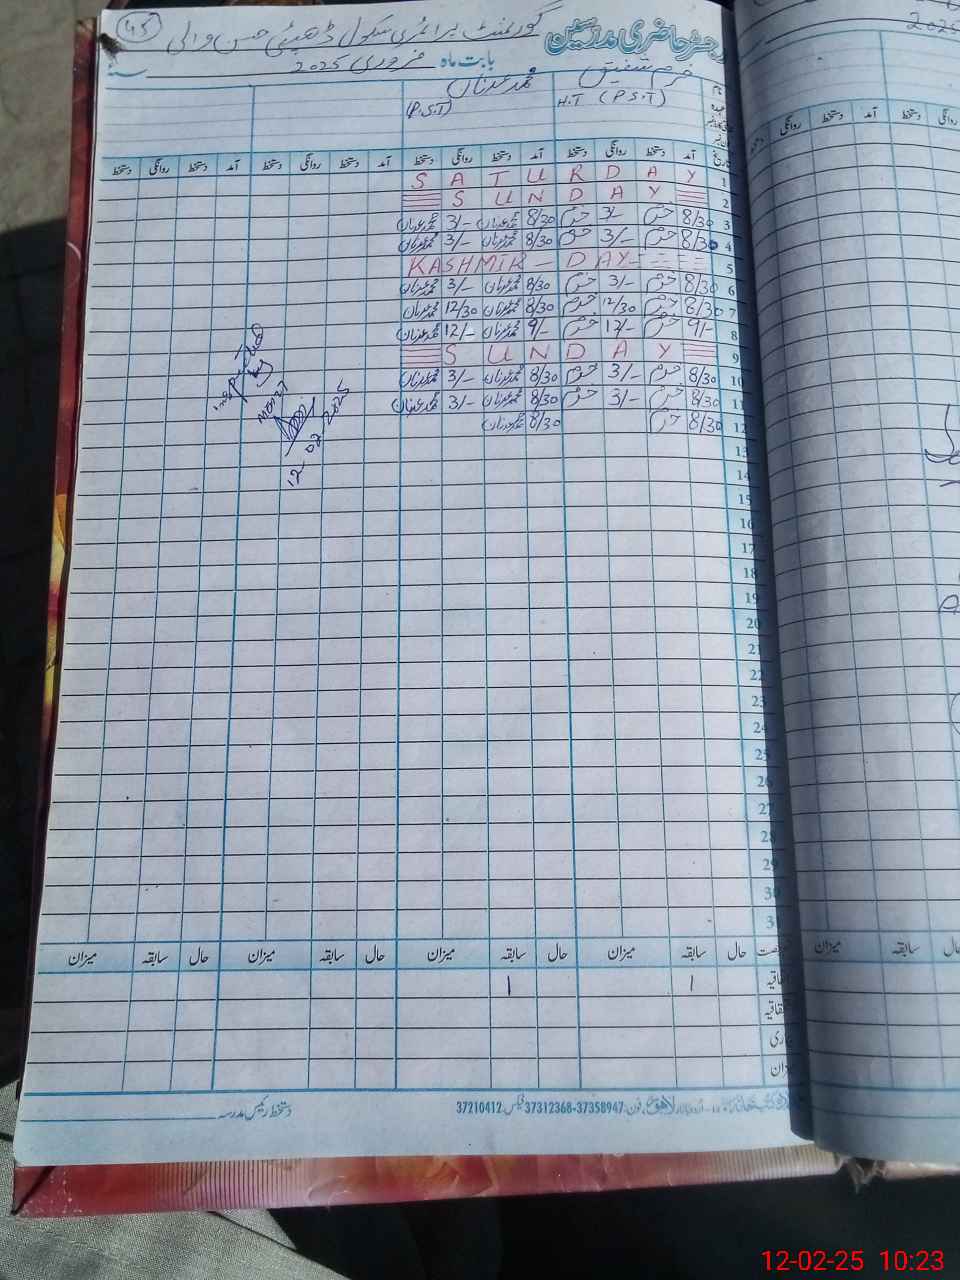 45 گورنمنٹ پرائمری سکول ڈھیئی حسن والی
رجسٹر حاضری مدرسین
بابت ماہ فروری 2025 سنہ
خرم شفیق محمد عدنان
H.T (P.S.T) (P.S.T)
آمد دستخط روانگی دستخط آمد دستخط روانگی دستخط آمد دستخط روانگی دستخط آمد دستخط روانگی دستخط
1 SATURDAY
2 SUNDAY
3 8/30 خرم 3/- خرم 8/30 محمد عدنان 3/- محمد عدنان
4 8/30 خرم 3/- خرم 8/30 محمد عدنان 3/- محمد عدنان
5 KASHMIR - DAY
6 8/30 خرم 3/- خرم 8/30 محمد عدنان 3/- محمد عدنان
7 8/30 خرم 12/30 خرم 8/30 محمد عدنان 12/30 محمد عدنان
8 9/- خرم 12/- خرم 9/- محمد عدنان 12/- محمد عدنان
9 SUNDAY
10 8/30 خرم 3/- خرم 8/30 محمد عدنان 3/- محمد عدنان
11 8/30 خرم 3/- خرم 8/30 محمد عدنان 3/- محمد عدنان
12 8/30 خرم 8/30 محمد عدنان
12-02-2025
13
14
15
16
17
18
19
20
21
22
23
24
25
26
27
28
29
30
31
حال سابقہ میزان حال سابقہ میزان حال سابقہ میزان حال سابقہ میزان
1 1
دستخط رئیس مدرسہ
لاہور فون: 37358947-37312368 فیکس: 37210412
2025
روانگی دستخط آمد دستخط روانگی
میزان سابقہ حال
12-02-25 10:23